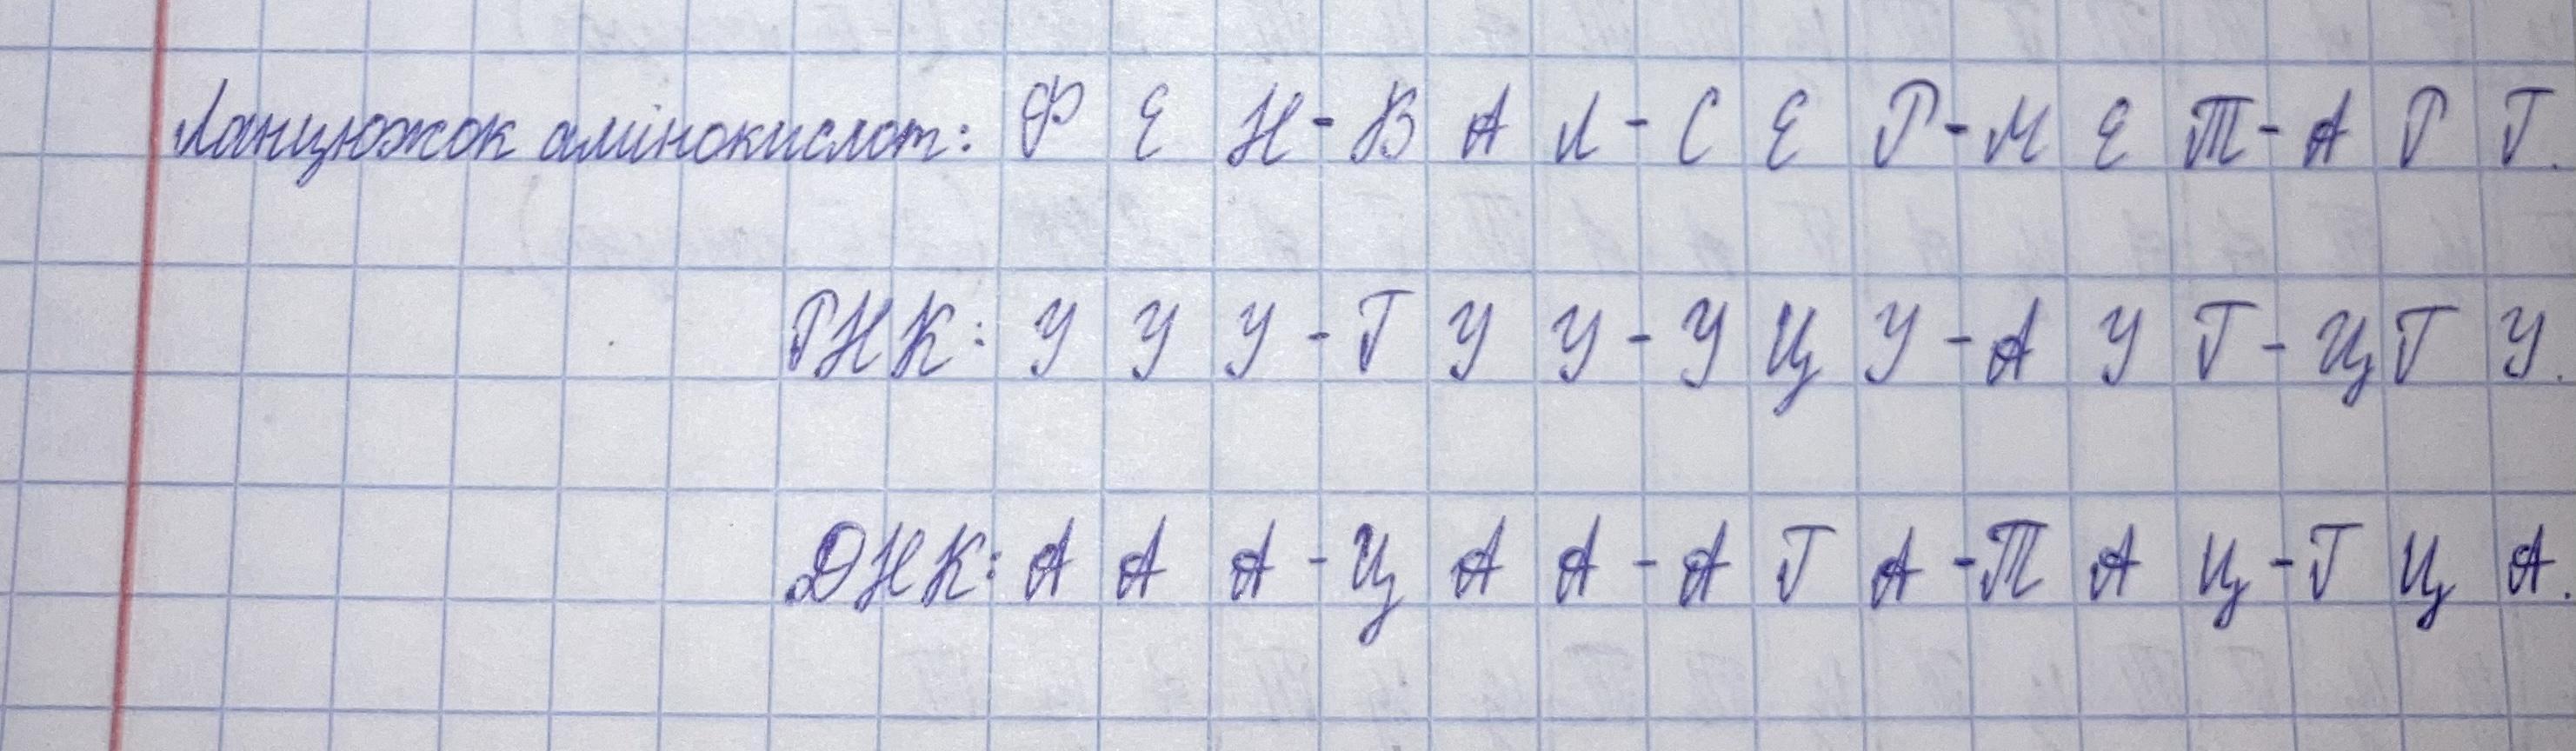 Ланцюжок амінокислот: Ф Е Н - В А Л - С Е Р - М Е Т - А Р Г.
РНК: У У У - Г У У - У Ц У - А У Г - Ц Г У.
ДНК: А А А - Ц А А - А Г А - Т А Ц - Г Ц А.